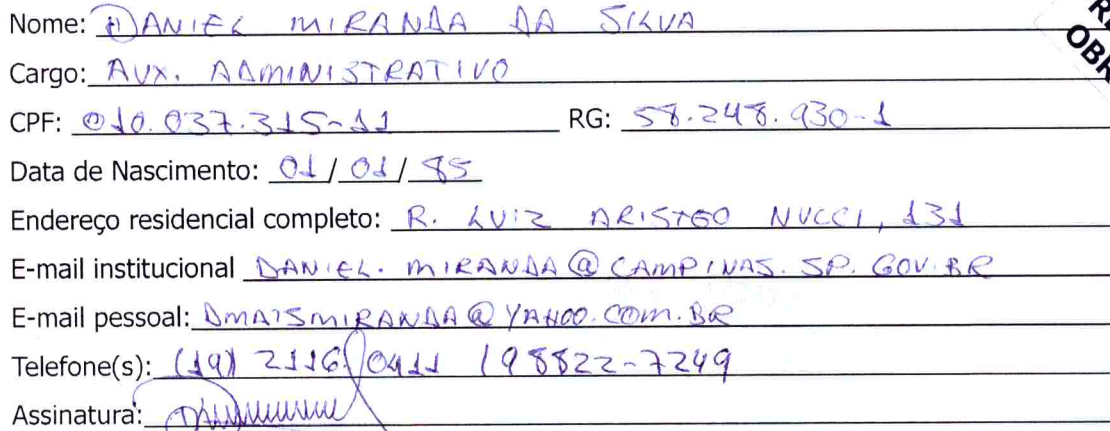 Nome: DANIEL MIRANDA DA SILVA
Cargo: AUX. ADMINISTRATIVO
CPF: 010.037.315-11 RG: 58.248.930-1
Data de Nascimento: 01/01/85
Endereço residencial completo: R. LUIZ ARISTEO NUCCI, 131
E-mail institucional DANIEL.MIRANDA@CAMPINAS.SP.GOV.BR
E-mail pessoal: DMAISMIRANDA@YAHOO.COM.BR
Telefone(s): (19) 2116 0411 / 98822-7249
Assinatura: